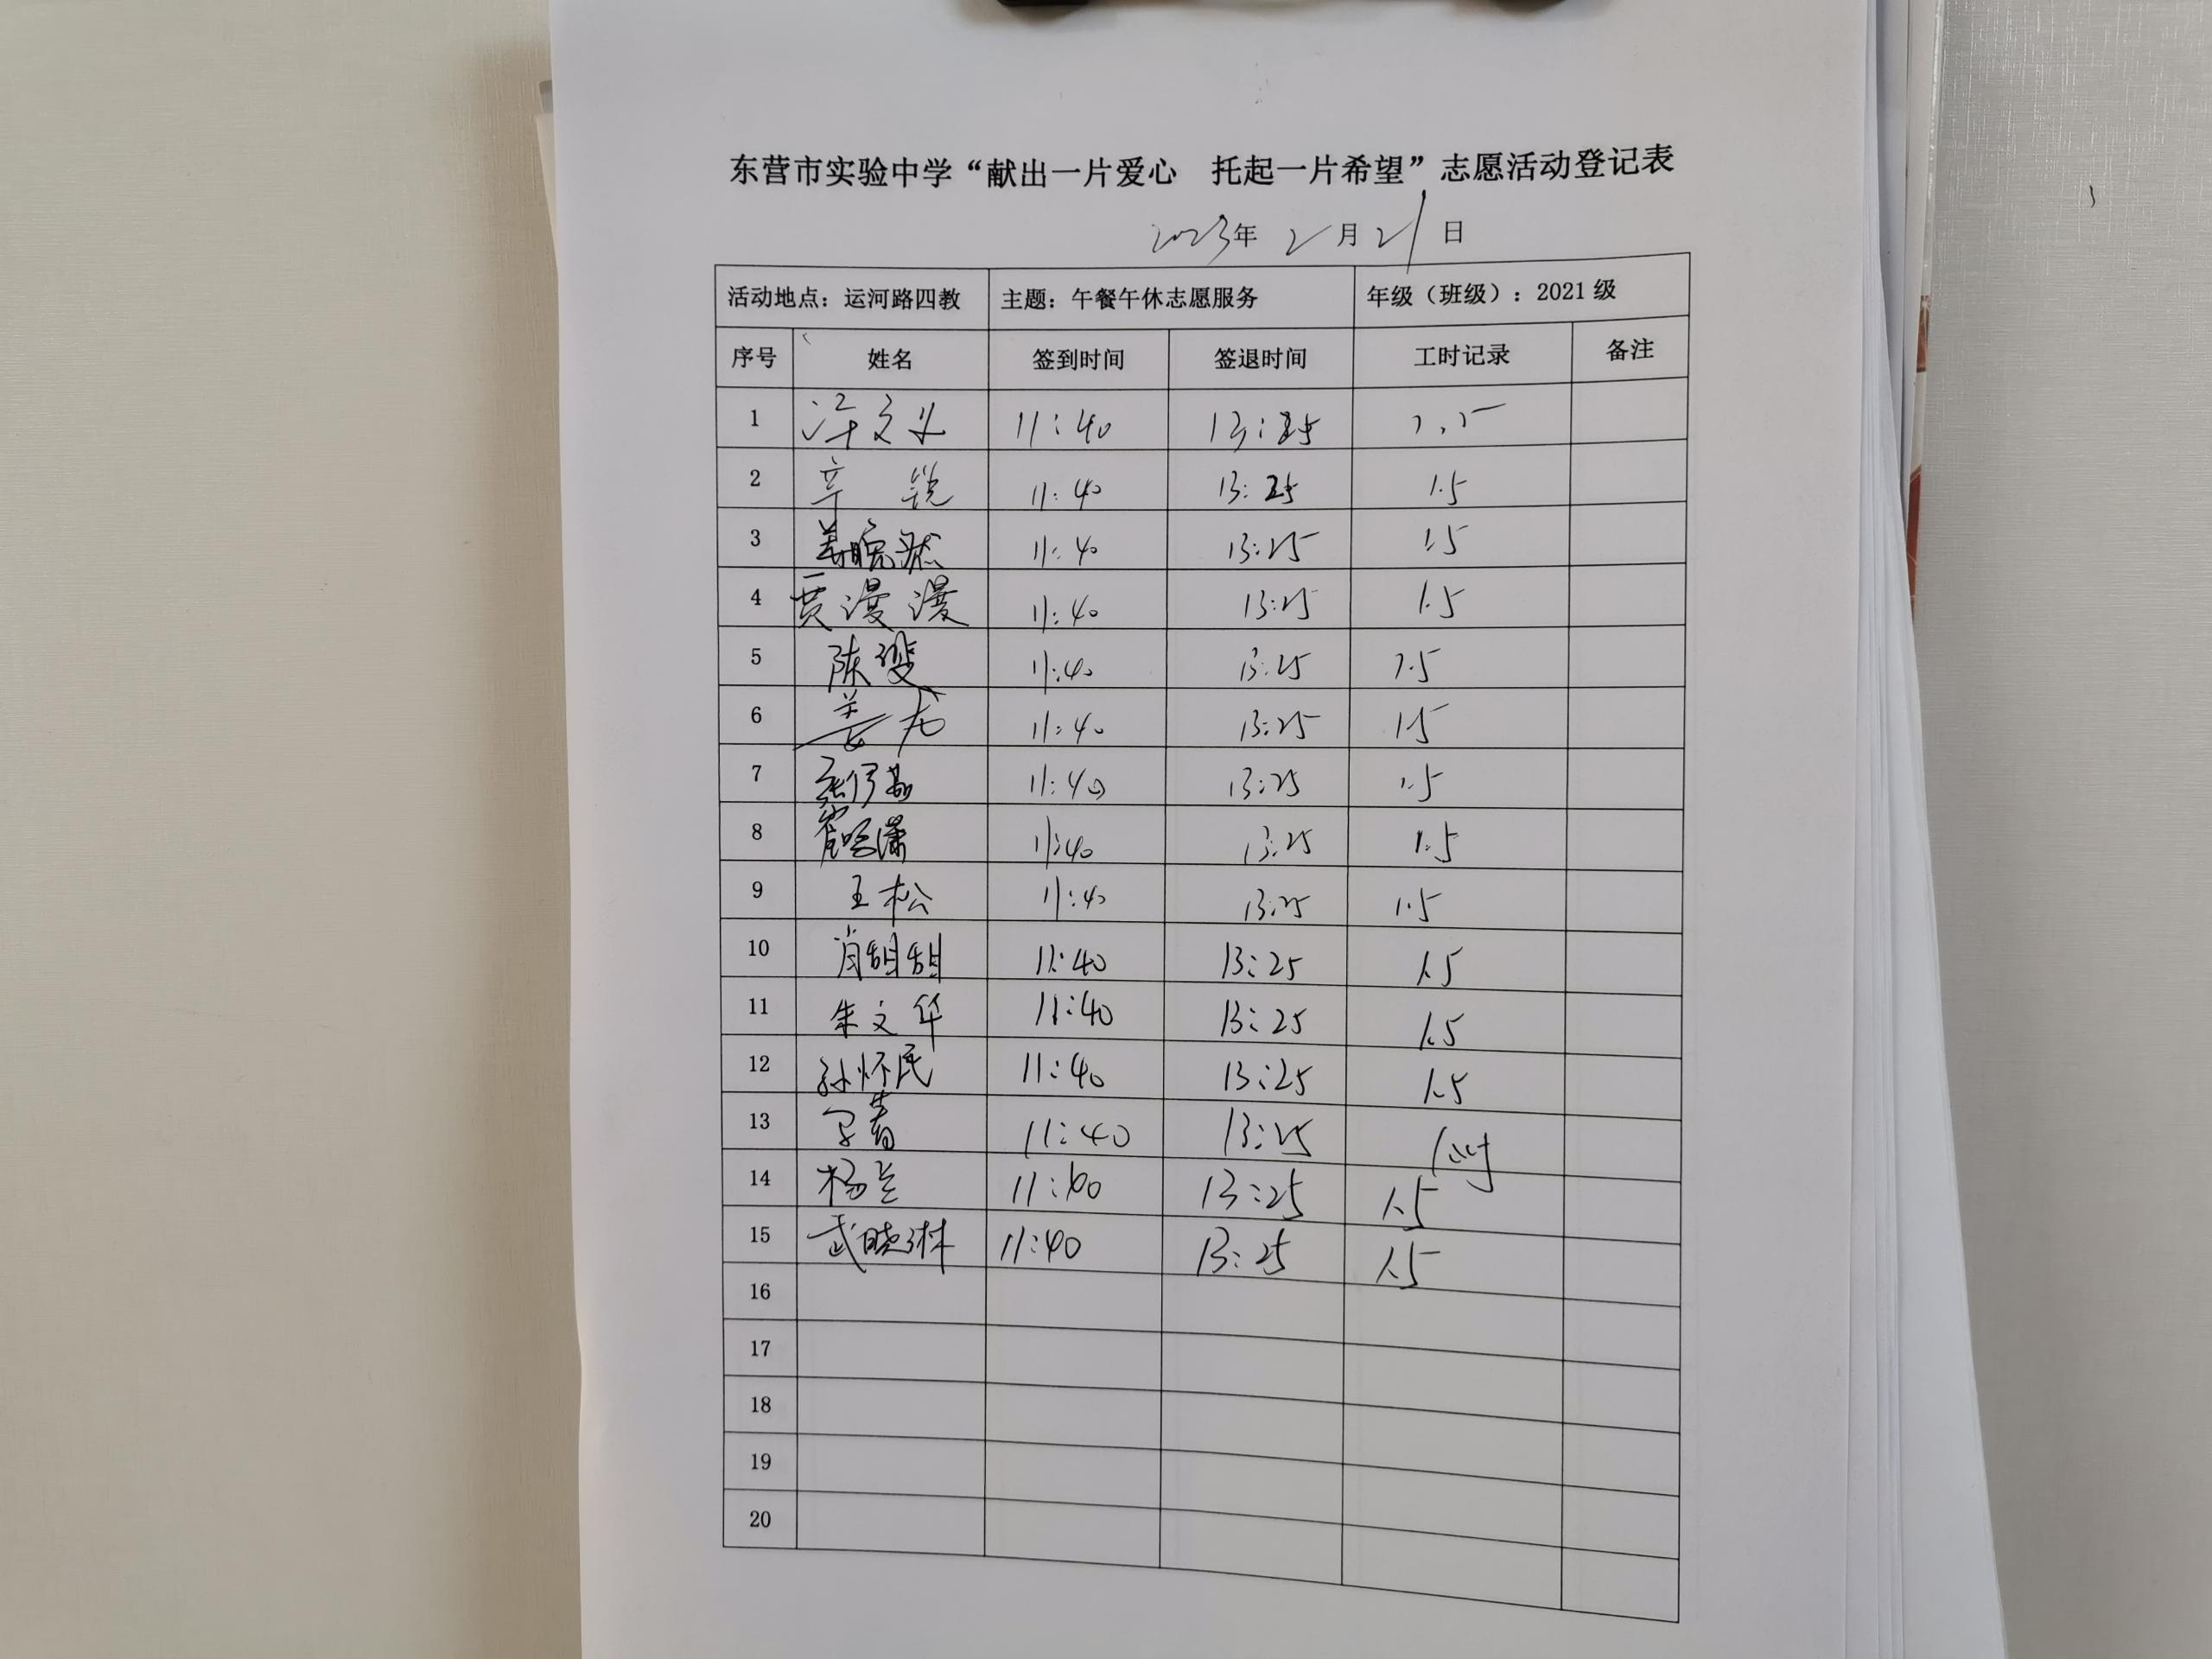 东营市实验中学“献出一片爱心 托起一片希望”志愿活动登记表
2023年 2月21日
活动地点：运河路四教 主题：午餐午休志愿服务 年级（班级）：2021级
序号 姓名 签到时间 签退时间 工时记录 备注
1 11:40 13:25 1.5
2 辛锐 11:40 13:25 1.5
3 姜晓然 11:40 13:25 1.5
4 贾漫漫 11:40 13:25 1.5
5 陈斐 11:40 13:25 1.5
6 姜龙 11:40 13:25 1.5
7 11:40 13:25 1.5
8 11:40 13:25 1.5
9 王松 11:40 13:25 1.5
10 肖甜甜 11:40 13:25 1.5
11 朱文华 11:40 13:25 1.5
12 孙怀民 11:40 13:25 1.5
13 11:40 13:25
14 杨兰 11:40 13:25 1.5
15 武晓琳 11:40 13:25 1.5
16
17
18
19
20